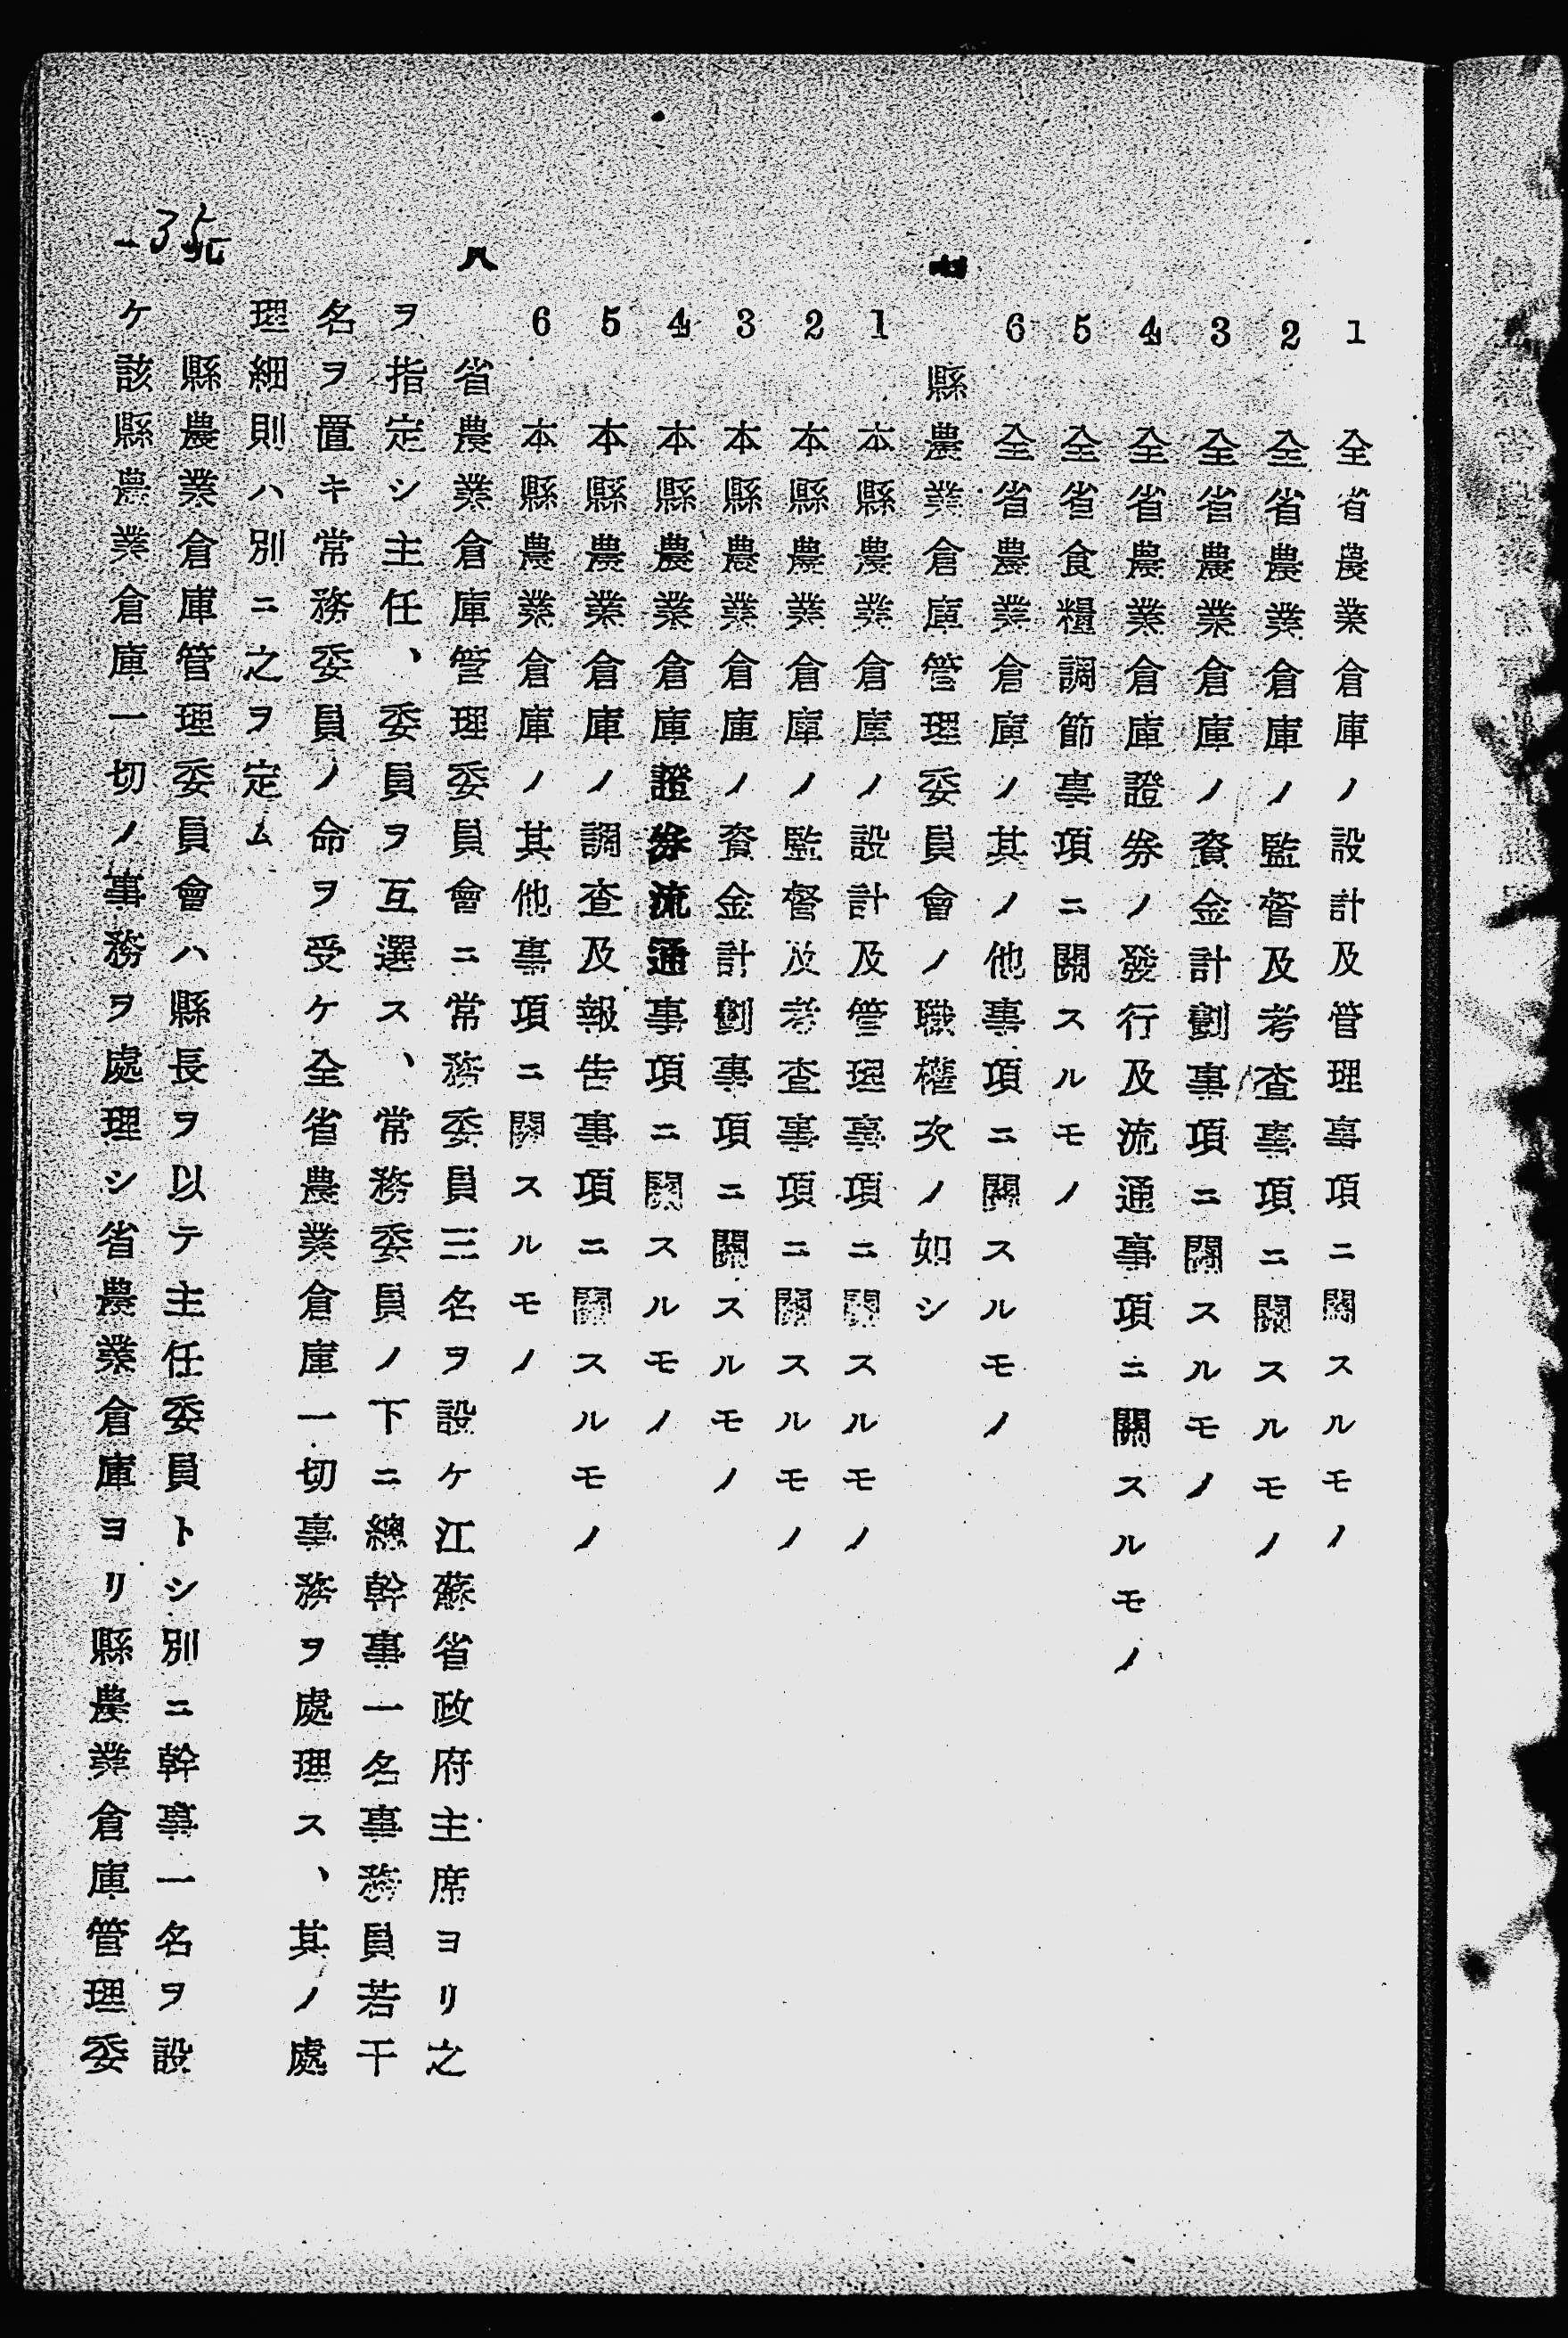 1 全省農業倉庫ノ設計及管理事項ニ關スルモノ
2 全省農業倉庫ノ監督及考査事項ニ關スルモノ
3 全省農業倉庫ノ資金計劃事項ニ關スルモノ
4 全省農業倉庫證券ノ發行及流通事項ニ關スルモノ
5 全省食糧調節事項ニ關スルモノ
6 全省農業倉庫ノ其ノ他事項ニ關スルモノ
縣農業倉庫管理委員會ノ職權次ノ如シ
1 本縣農業倉庫ノ設計及管理事項ニ關スルモノ
2 本縣農業倉庫ノ監督及考査事項ニ關スルモノ
3 本縣農業倉庫ノ資金計劃事項ニ關スルモノ
4 本縣農業倉庫證券流通事項ニ關スルモノ
5 本縣農業倉庫ノ調査及報告事項ニ關スルモノ
6 本縣農業倉庫ノ其他事項ニ關スルモノ
八 省農業倉庫管理委員會ニ常務委員三名ヲ設ケ江蘇省政府主席ヨリ之
ヲ指定シ主任、委員ヲ互選ス、常務委員ノ下ニ總幹事一名事務員若干
名ヲ置キ常務委員ノ命ヲ受ケ全省農業倉庫一切事務ヲ處理ス、其ノ處
理細則ハ別ニ之ヲ定ム
九 縣農業倉庫管理委員會ハ縣長ヲ以テ主任委員トシ別ニ幹事一名ヲ設
ケ該縣農業倉庫一切ノ事務ヲ處理シ省農業倉庫ヨリ縣農業倉庫管理委
35